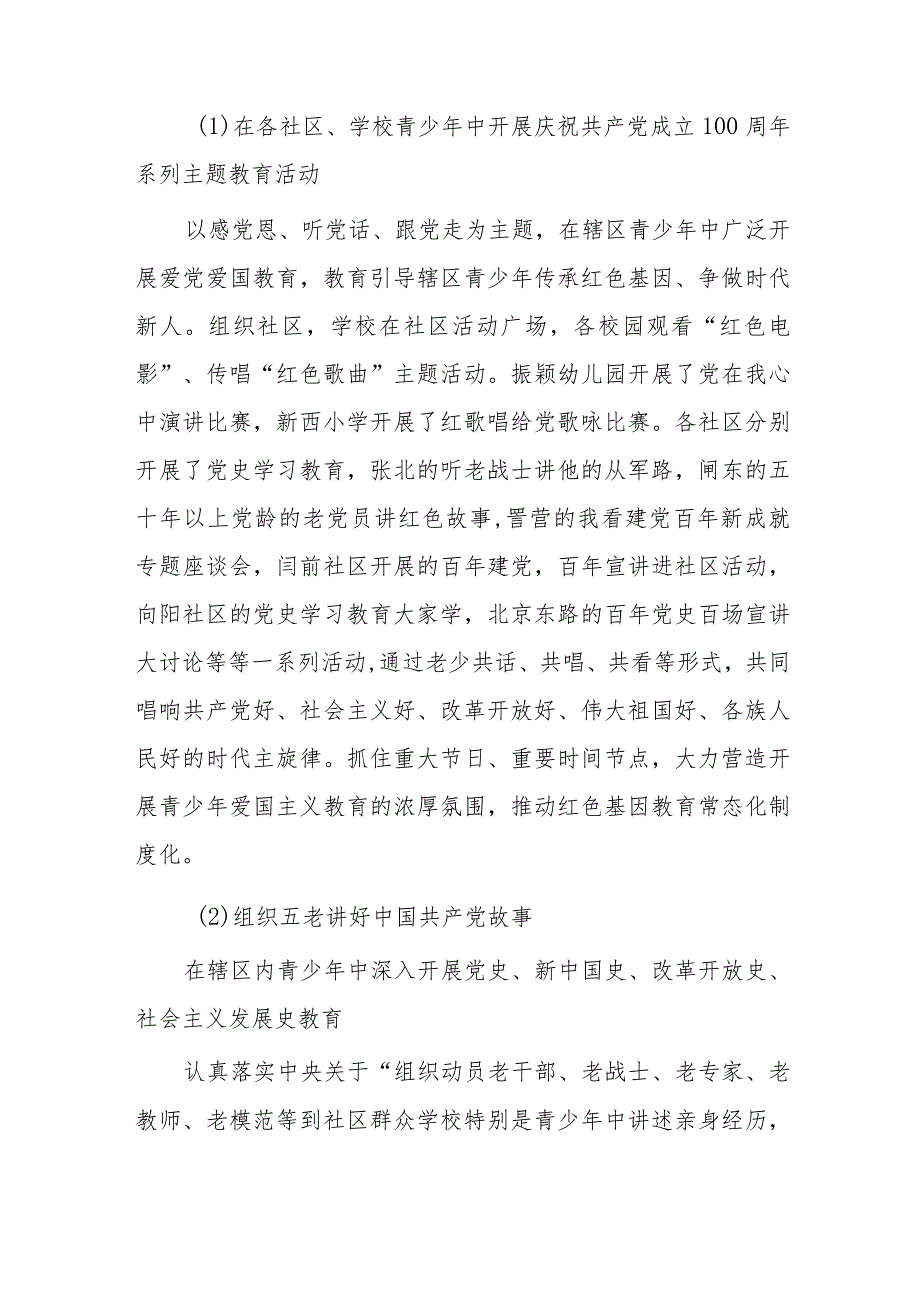 (1)在各社区、学校青少年中开展庆祝共产党成立 100 周年
系列主题教育活动
以感党恩、听党话、跟党走为主题，在辖区青少年中广泛开
展爱党爱国教育，教育引导辖区青少年传承红色基因、争做时代
新人。组织社区，学校在社区活动广场，各校园观看“红色电
影”、传唱“红色歌曲”主题活动。振颖幼儿园开展了党在我心
中演讲比赛，新西小学开展了红歌唱给党歌咏比赛。各社区分别
开展了党史学习教育，张北的听老战士讲他的从军路，闸东的五
十年以上党龄的老党员讲红色故事,罟营的我看建党百年新成就
专题座谈会，闫前社区开展的百年建党，百年宣讲进社区活动，
向阳社区的党史学习教育大家学，北京东路的百年党史百场宣讲
大讨论等等一系列活动,通过老少共话、共唱、共看等形式，共同
唱响共产党好、社会主义好、改革开放好、伟大祖国好、各族人
民好的时代主旋律。抓住重大节日、重要时间节点，大力营造开
展青少年爱国主义教育的浓厚氛围，推动红色基因教育常态化制
度化。
(2)组织五老讲好中国共产党故事
在辖区内青少年中深入开展党史、新中国史、改革开放史、
社会主义发展史教育
认真落实中央关于“组织动员老干部、老战士、老专家、老
教师、老模范等到社区群众学校特别是青少年中讲述亲身经历，